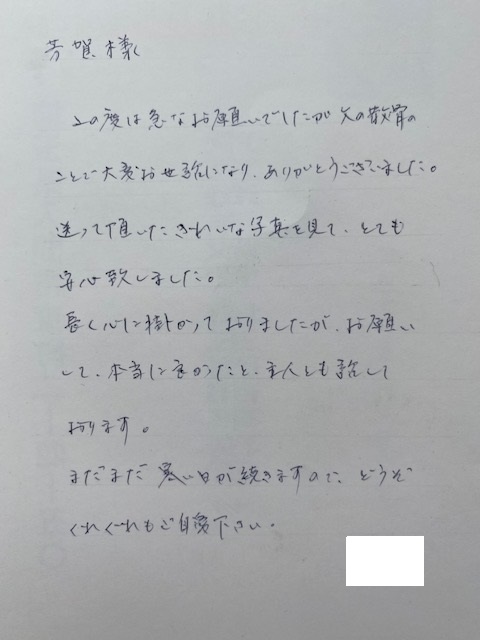 芳賀様
この度は急なお願いでしたが父の散骨の
ことで大変お世話になり、ありがとうございました。
送って頂いたきれいな写真を見て、とても
安心致しました。
長く心に掛かって おりましたが、お願い
して、本当に良かったと、主人とも話して
おります。
まだまだ 寒い日が続きますので、どうぞ
くれぐれもご自愛下さい。